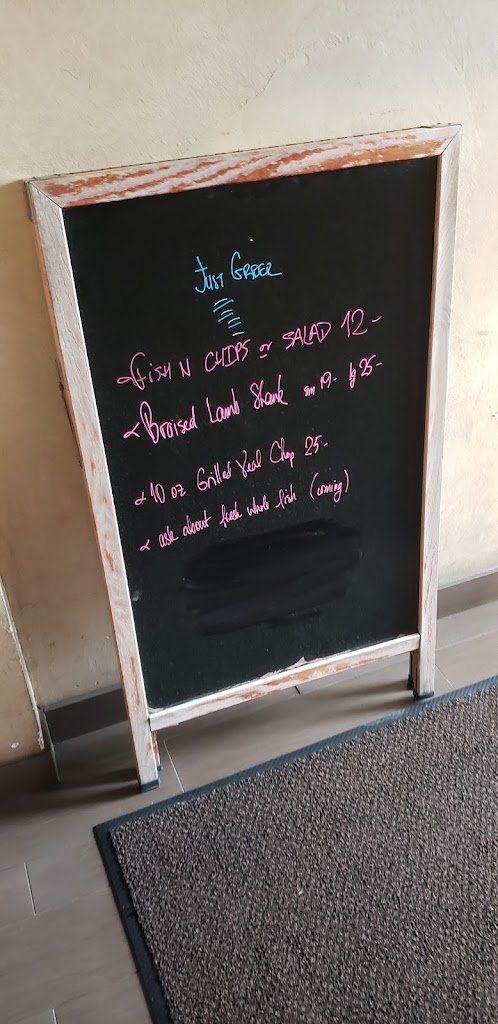 JUST GREEK
FISH N CHIPS or SALAD 12-
Braised Lamb Shank sm 19- lg 25-
10 oz Grilled Veal Chop 25-
ask about fresh whole fish (coming)